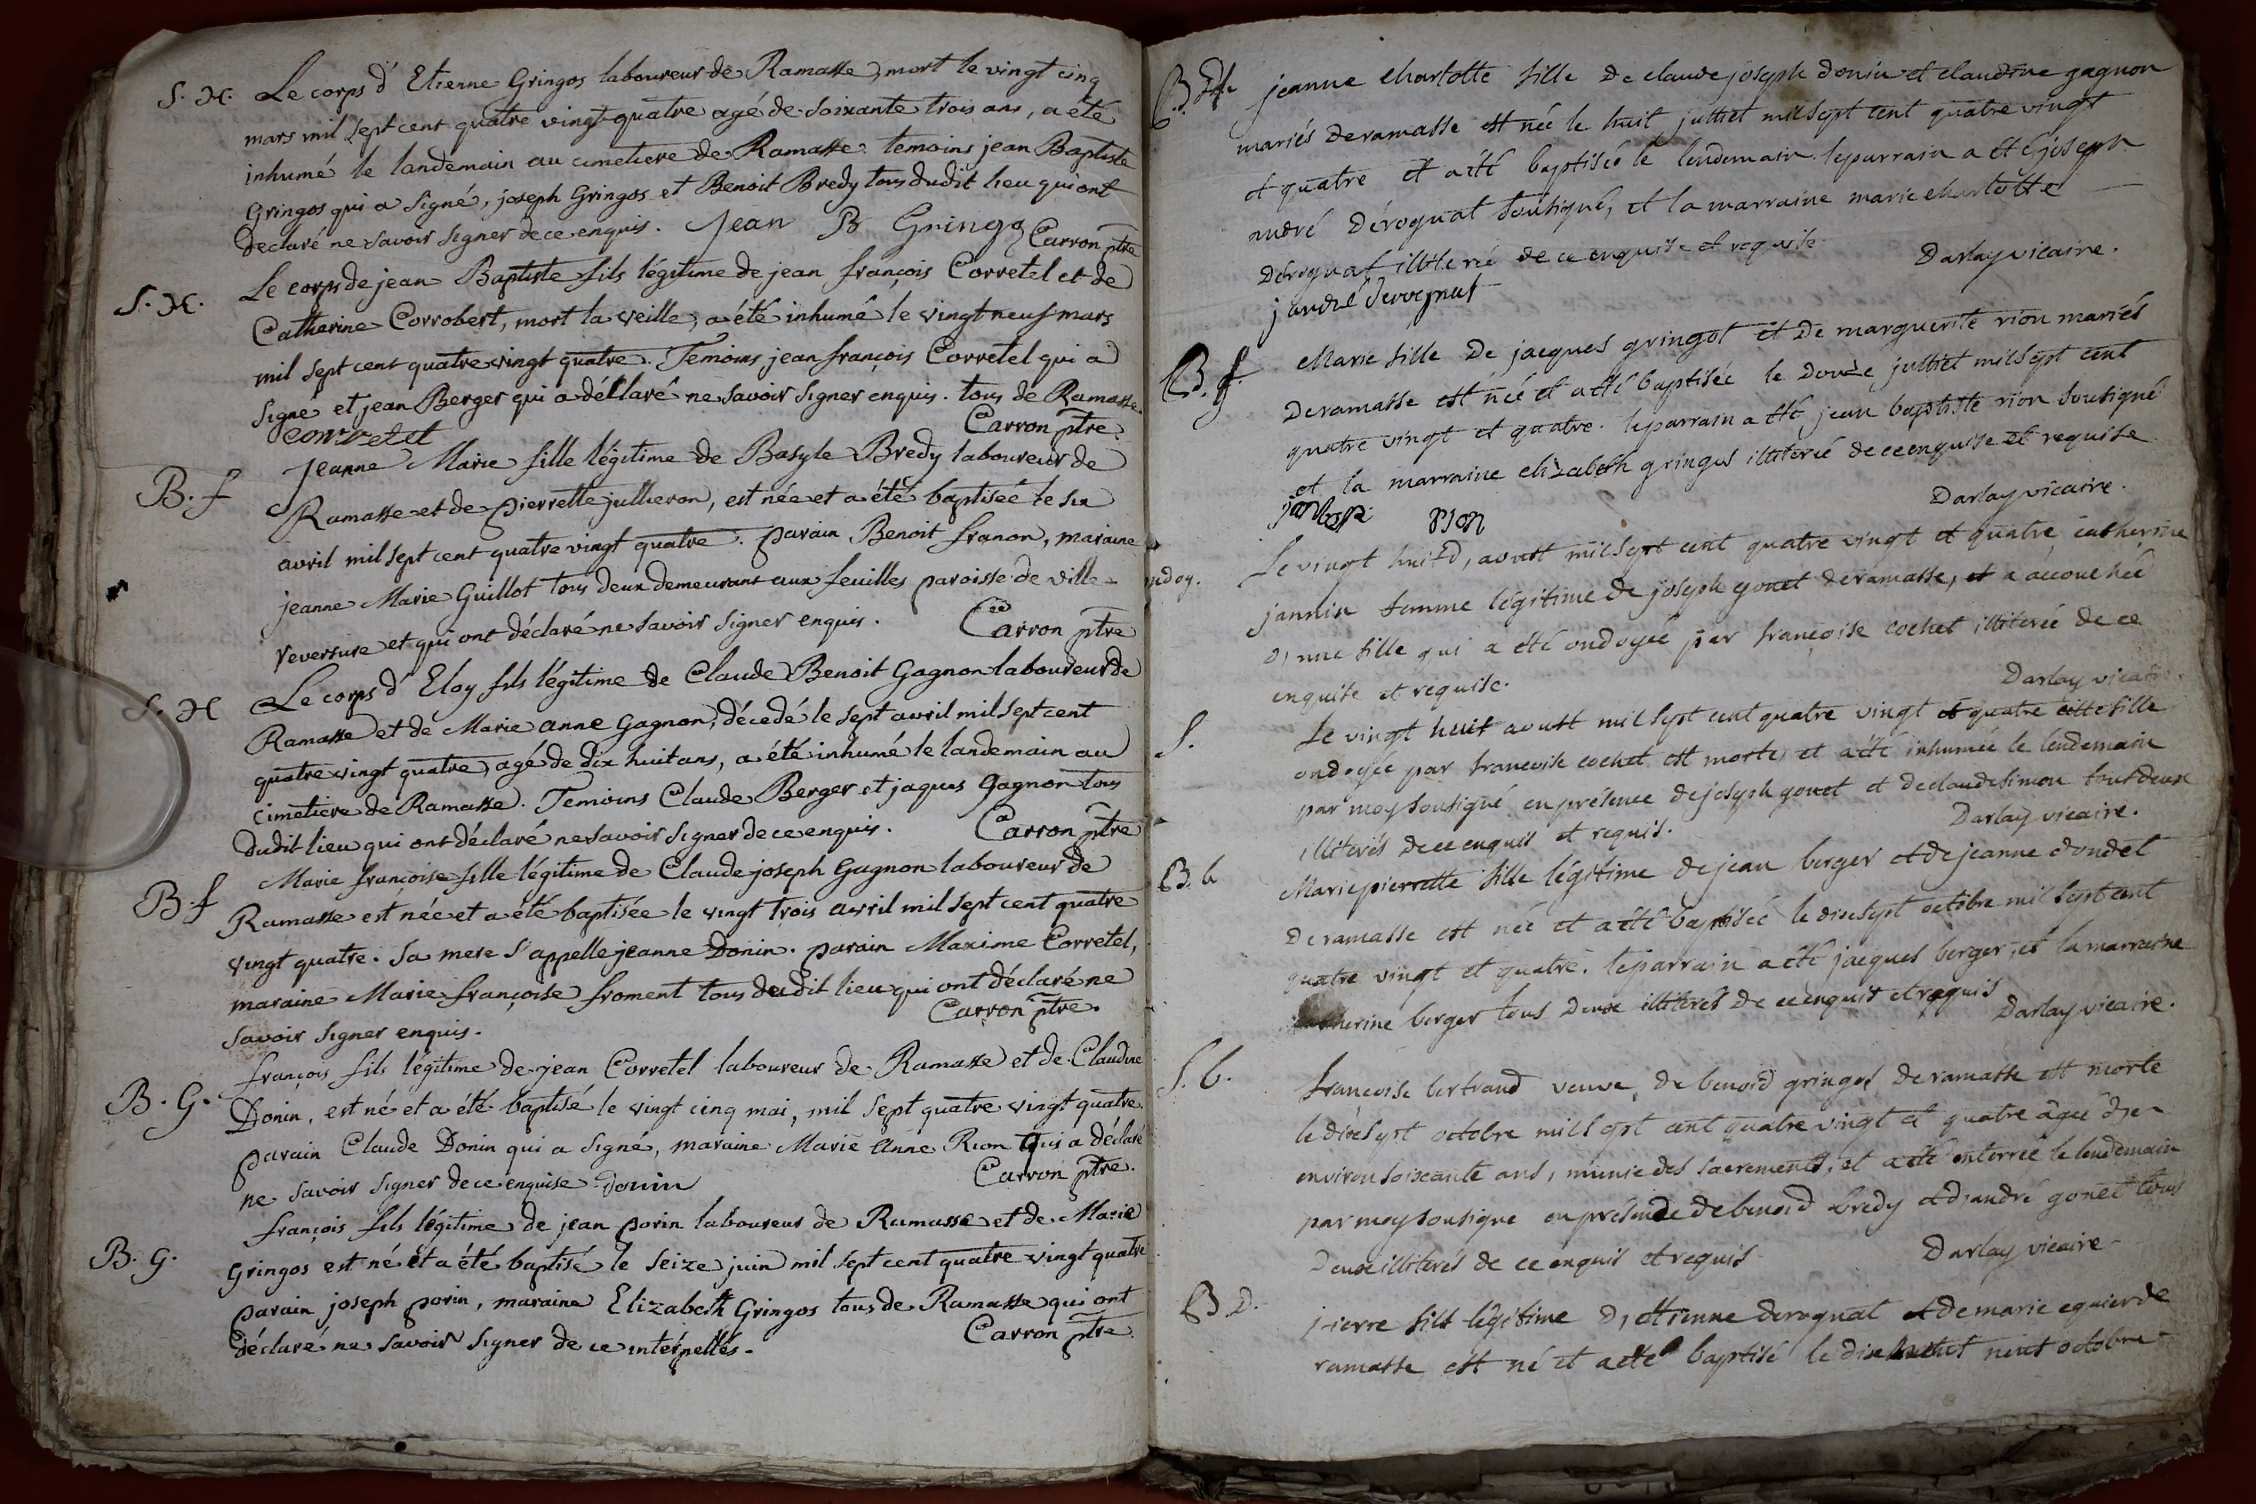 S. H. Le corps d'Etienne Gringos laboureur de Ramasse, mort le vingt cinq
mars mil sept cent quatre vingt quatre agé de soixante trois ans, a été
inhumé le landemain au cimetiere de Ramasse. temoins jean Baptiste
Gringos qui a signé, joseph Gringos et Benoit Bredy tous dudit lieu qui ont
declaré ne savoir signer de ce enquis. Jean B Gringos Carron ptre
S. H. Le corps de jean Baptiste fils légitime de jean françois Corretel et de
Catharine Corrobert, mort la veille, a été inhumé le vingt neuf mars
mil sept cent quatre vingt quatre. Temoins jean françois Corretel qui a
signé et jean Berger qui a déclaré ne savoir signer enquis. tous de Ramasse.
corretel Carron ptre
B. f Jeanne Marie fille légitime de Basyle Bredy laboureur de
Ramasse et de pierrette jullieron, est née et a été baptisée le six
avril mil sept cent quatre vingt quatre. parain Benoit franon, maraine
jeanne Marie Guillot tous deux demeurant aux feuilles paroisse de ville-
reversure et qui ont déclaré ne savoir signer enquis. Carron ptre
S. H Le corps d'Eloy fils légitime de Claude Benoit Gagnon laboureur de
Ramasse et de Marie anne Gagnon, décedé le sept avril mil sept cent
quatre vingt quatre, agé de dix huit ans, a été inhumé le landemain au
cimetiere de Ramasse. Temoins Claude Berger et jaques Gagnon tous
dudit lieu qui ont déclaré ne savoir signer de ce enquis. Carron ptre
B. f Marie françoise fille légitime de Claude joseph Gagnon laboureur de
Ramasse est née et a été baptisée le vingt trois avril mil sept cent quatre
vingt quatre. Sa mere s'appelle jeanne Donin. parain Maxime Corretel,
maraine Marie françoise froment tous dudit lieu qui ont déclaré ne
savoir signer enquis. Carron ptre.
B. G. françois fils légitime de jean Corretel laboureur de Ramasse et de Claudine
Donin, est né et a été baptisé le vingt cinq mai, mil sept quatre vingt quatre.
parain Claude Donin qui a signé, maraine Marie Anne Rion qui a déclaré
ne savoir signer de ce enquise Donin Carron ptre.
B. G. françois fils légitime de jean porin laboureur de Ramasse et de Marie
Gringos est né et a été baptisé le seize juin mil sept cent quatre vingt quatre
parain joseph porin, maraine Elizabeth Gringos tous de Ramasse qui ont
déclaré ne savoir signer de ce interpellés. Carron ptre
B. jeanne charlotte fille de claude joseph donin et claudine gagnon
mariés de ramasse est née le huit julliet mil sept cent quatre vingt
et quatre et a été baptisée le lendemain. le parrain a été joseph
andré déroguat soussigné, et la marraine marie charlotte
déroguat illiterée de ce enquise et requise. Darlay vicaire.
j andré deroguat
B. f. Marie fille de jacques gringot et de marguerite rion mariés
de ramasse est née et a été baptisée le douze julliet mil sept cent
quatre vingt et quatre. le parrain a été jean baptiste rion soussigné
et la marraine elizabeth gringos illiterée de ce enquise et requise
rion Darlay vicaire.
ondoy. Le vingt huit d'aoust mil sept cent quatre vingt et quatre catherine
jannin femme légitime de joseph gonet de ramasse, et a accouchée
d'une fille qui a été ondoyée par françoise cochet illiterée de ce
enquise et requise. Darlay vicaire.
S. Le vingt huit aoust mil sept cent quatre vingt et quatre cette fille
ondoyée par francoise cochet est morte, et a été inhumée le lendemain
par moy soussigné en présence de joseph gonet et de claude simon tout deux
illiterés de ce enquis et requis. Darlay vicaire.
B. b Marie pierrette fille légitime de jean berger et de jeanne dondel
de ramasse est née et a été baptisée le dixsept octobre mil sept cent
quatre vingt et quatre. le parrain a été jacques berger, et la marraine
catherine berger tous deux illiterés de ce enquis et requis Darlay vicaire.
S. b. francoise bertrand veuve de benoid gringos de ramasse est morte
le dixsept octobre mil sept cent quatre vingt et quatre âgée d'e-
environ soixante ans, munie des sacrements, et a été enterrée le lendemain
par moy soussigné en présence de benoid bredy et d'andré gonet tous
deux illiterés de ce enquis et requis. Darlay vicaire.
B D. pierre fils légitime d'ettienne deroguat et de marie eguier de
ramasse est né et a été baptisé le dix neuf octobre